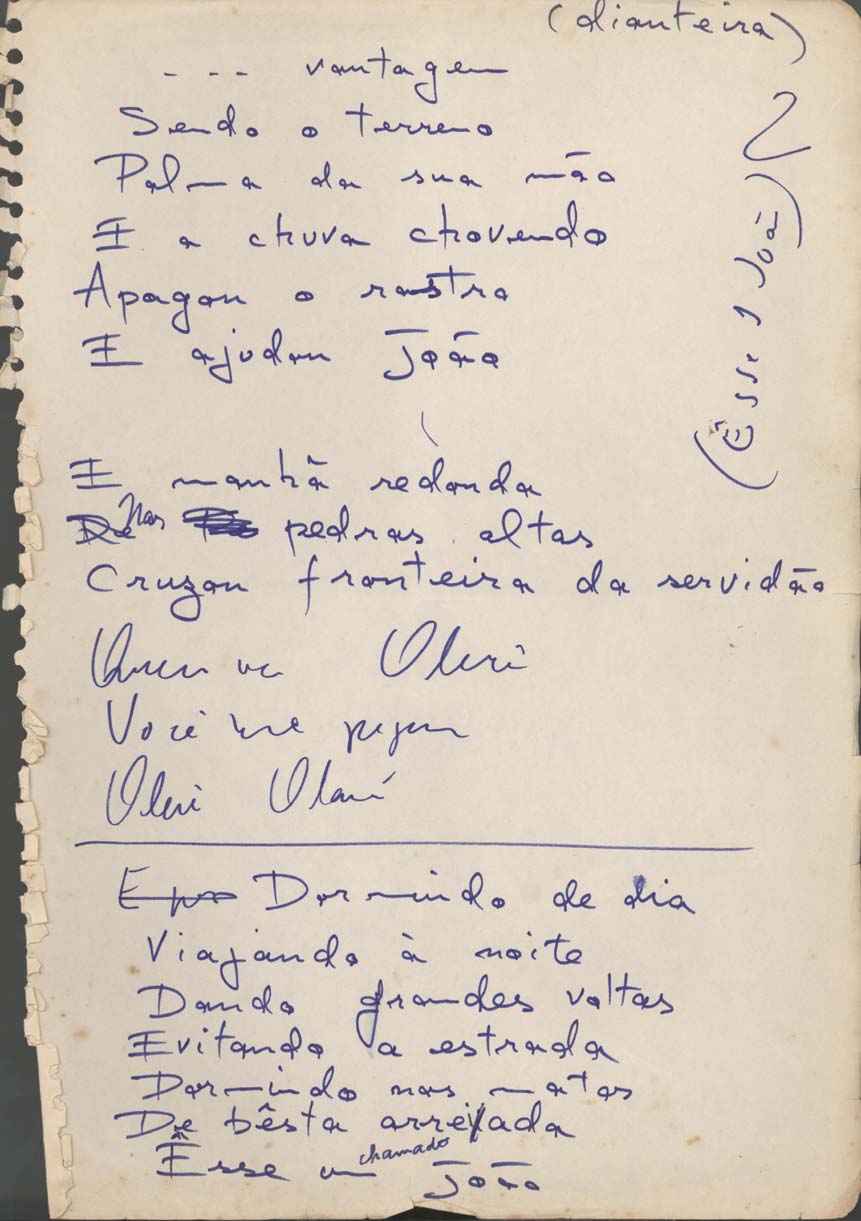 (dianteira)
--- vantagem
Sendo o terreno
Palma da sua mão
E a chuva chovendo
Apagou o rastro
E ajudou João
2
(Êsse 1 Joã)
E manhã redonda
De Nas pedras altas
Cruzou fronteira da servidão
Quem vem Olerê
Você me pegou
Olerê Olará
E Dormindo de dia
Viajando à noite
Dando grandes voltas
Evitando a estrada
Dormindo nas matas
De bêsta arreiada
Êsse um chamado João